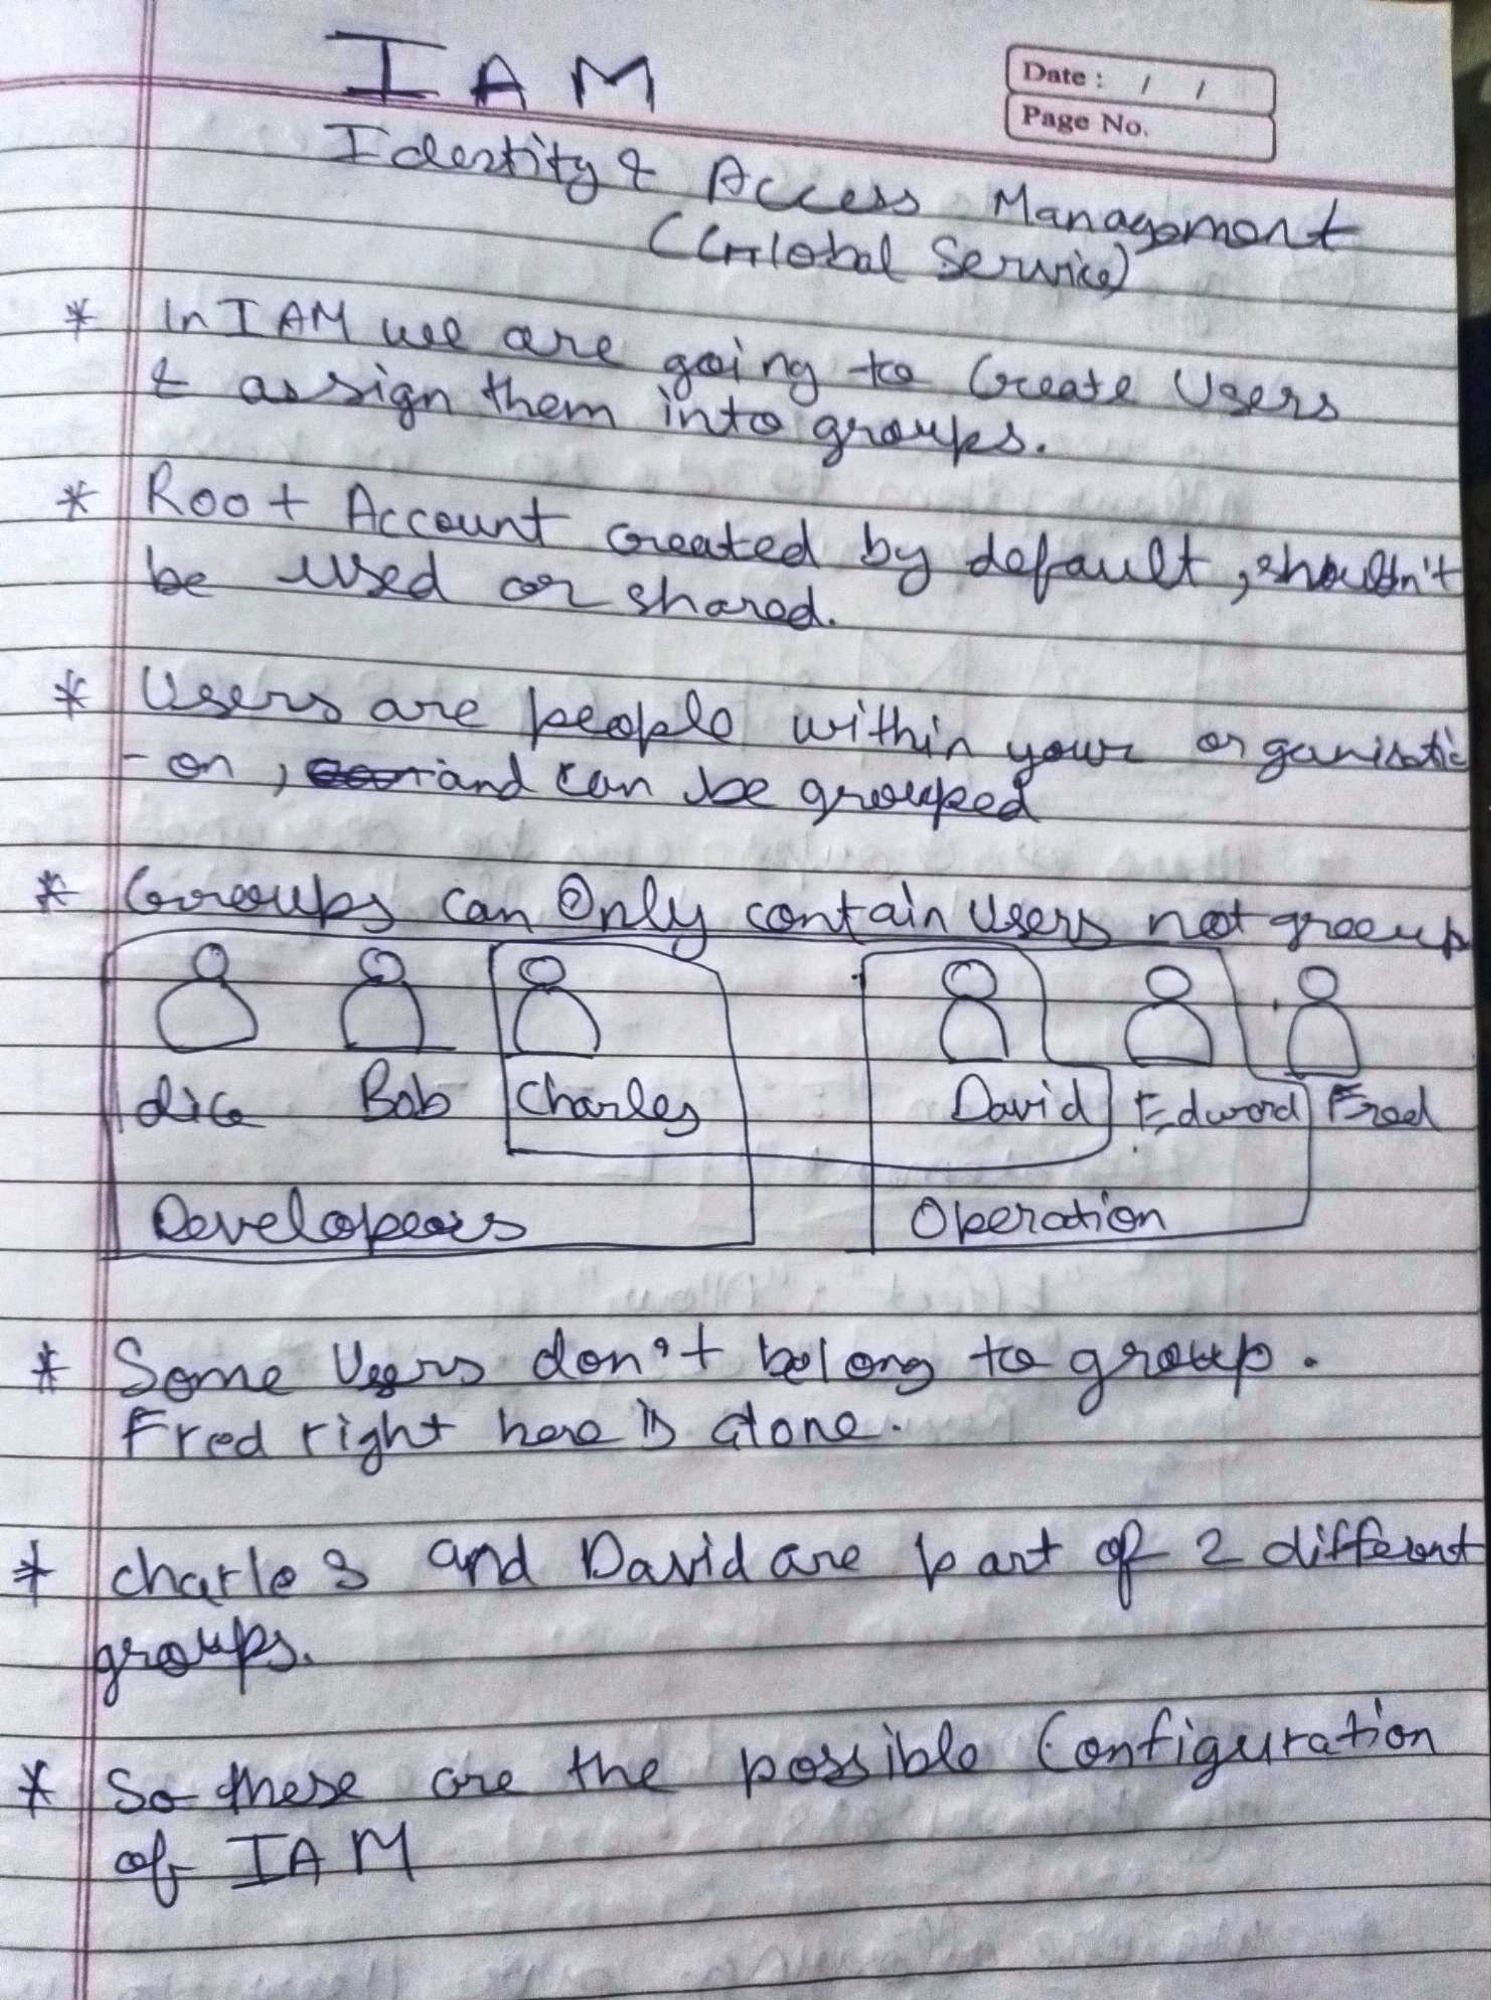 IAM
Date : / /
Page No.
Identity & Access Management
(Global Service)
* In IAM we are going to Create Users
& assign them into groups.
* Root Account created by default, shouldn't
be used or shared.
* Users are people within your organisatic
-on, and can be grouped
* Groups can Only contain users not group
Alice Bob Charles David Edward Fred
Developers Operation
* Some Users don't belong to group.
Fred right here is alone.
* Charles and David are part of 2 different
groups.
* So these are the possible Configuration
of IAM